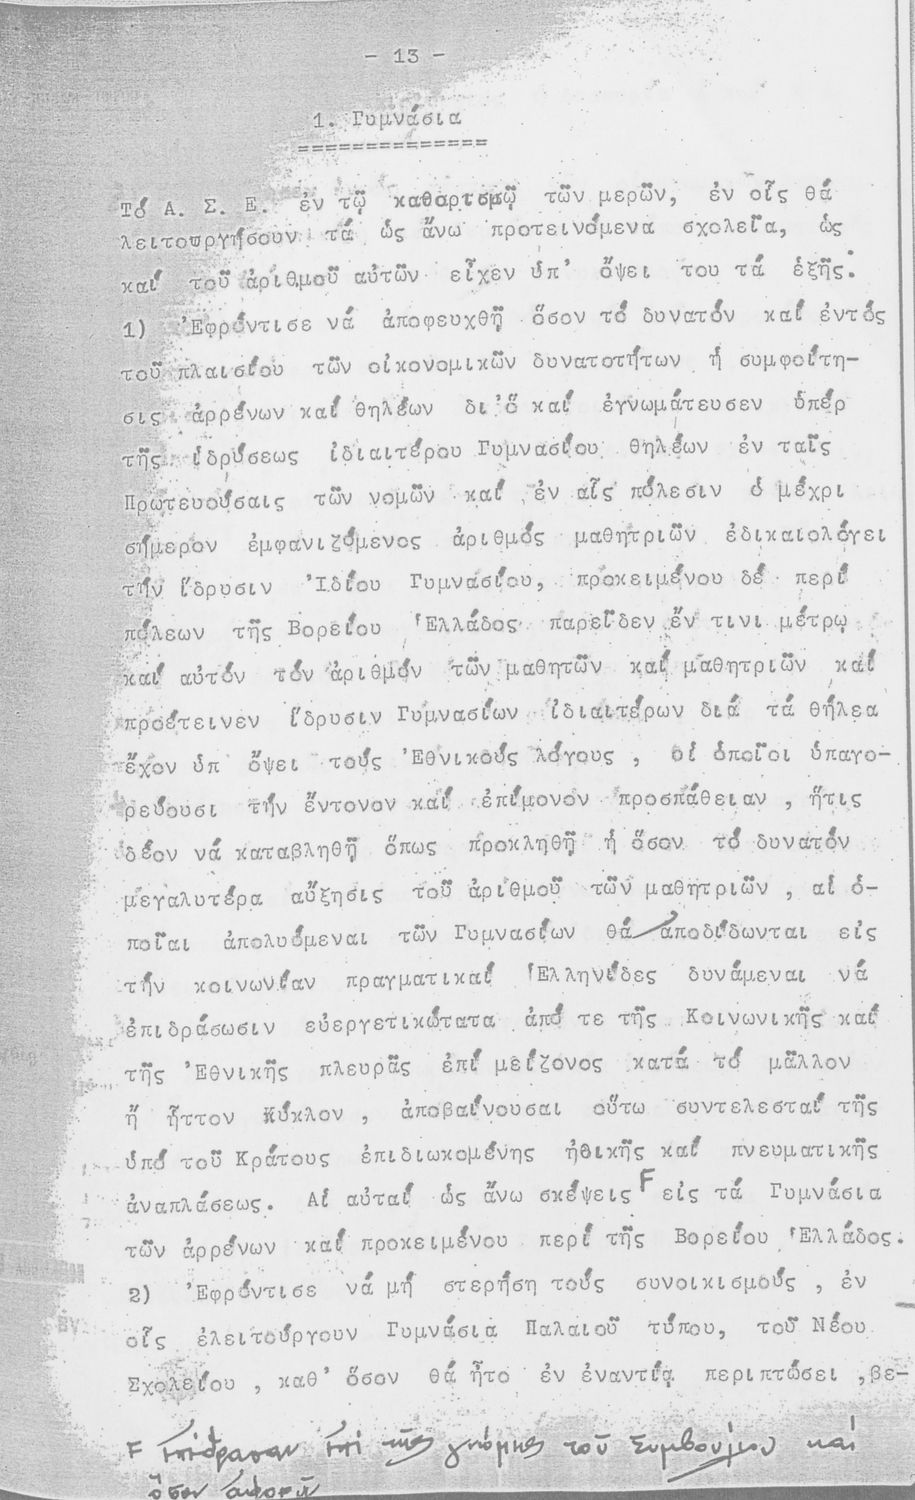 - 13 -
1. Γυμνάσια
==============
Τό Α. Σ. Ε. ἐν τῷ καθορισμῷ τῶν μερῶν, ἐν οἷς θά
λειτουργήσουν τά ὡς ἄνω προτεινόμενα σχολεῖα, ὡς
καί τοῦ ἀριθμοῦ αὐτῶν εἶχεν ὑπ' ὄψει του τά ἑξῆς:
1) Ἐφρόντισε νά ἀποφευχθῇ ὅσον τό δυνατόν καί ἐντός
τοῦ πλαισίου τῶν οἰκονομικῶν δυνατοτήτων ἡ συμφοίτη-
σις ἀρρένων καί θηλέων δι'ὅ καί ἐγνωμάτευσεν ὑπέρ
τῆς ἱδρύσεως ἰδιαιτέρου Γυμνασίου θηλέων ἐν ταῖς
Πρωτευούσαις τῶν νομῶν καί ἐν αἷς πόλεσιν ὁ μέχρι
σήμερον ἐμφανιζόμενος ἀριθμός μαθητριῶν ἐδικαιολόγει
τήν ἵδρυσιν Ἰδίου Γυμνασίου, προκειμένου δέ περί
πόλεων τῆς Βορείου Ἑλλάδος παρεῖδεν ἔν τινι μέτρῳ
καί αὐτόν τόν ἀριθμόν τῶν μαθητῶν καί μαθητριῶν καί
προέτεινεν ἵδρυσιν Γυμνασίων ἰδιαιτέρων διά τά θήλεα
ἔχον ὑπ ὄψει τούς Ἐθνικούς λόγους , οἱ ὁποῖοι ὑπαγο-
ρεύουσι τήν ἔντονον καί ἐπίμονον προσπάθειαν , ἥτις
δέον νά καταβληθῇ ὅπως προκληθῇ ἡ ὅσον τό δυνατόν
μεγαλυτέρα αὔξησις τοῦ ἀριθμοῦ τῶν μαθητριῶν , αἱ ὁ-
ποῖαι ἀπολυόμεναι τῶν Γυμνασίων θά ἀποδίδωνται εἰς
τήν κοινωνίαν πραγματικαί Ἑλληνίδες δυνάμεναι νά
ἐπιδράσωσιν εὐεργετικώτατα ἀπό τε τῆς Κοινωνικῆς καί
τῆς Ἐθνικῆς πλευρᾶς ἐπί μείζονος κατά τό μᾶλλον
ἤ ἧττον Κύκλον , ἀποβαίνουσαι οὕτω συντελεσταί τῆς
ὑπό τοῦ Κράτους ἐπιδιωκομένης ἠθικῆς καί πνευματικῆς
ἀναπλάσεως. Αἱ αὐταί ὡς ἄνω σκέψεις F εἰς τά Γυμνάσια
τῶν ἀρρένων καί προκειμένου περί τῆς Βορείου Ἑλλάδος.
2) Ἐφρόντισε νά μή στερήσῃ τούς συνοικισμούς , ἐν
οἷς ἐλειτούργουν Γυμνάσια Παλαιοῦ τύπου, τοῦ Νέου
Σχολείου , καθ' ὅσον θά ἦτο ἐν ἐναντίᾳ περιπτώσει ,βε-
F ἐπέδρασαν ἐπί τῆς γνώμης τοῦ Συμβουλίου καί
ὅσον ἀφορᾷ